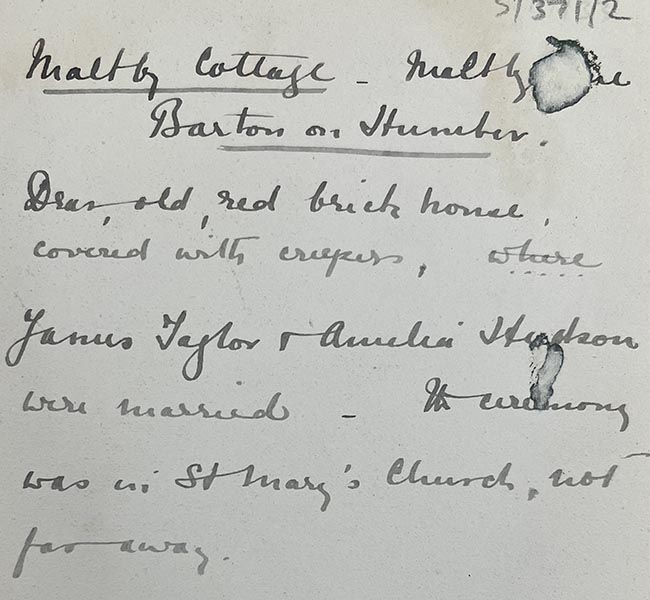 S/371/2
Maltby Cottage - Maltby
Barton on Humber.
Dear, old, red brick house,
covered with creepers, where
James Taylor & Amelia Hudson
were married - The ceremony
was in St Mary's Church, not
far away.